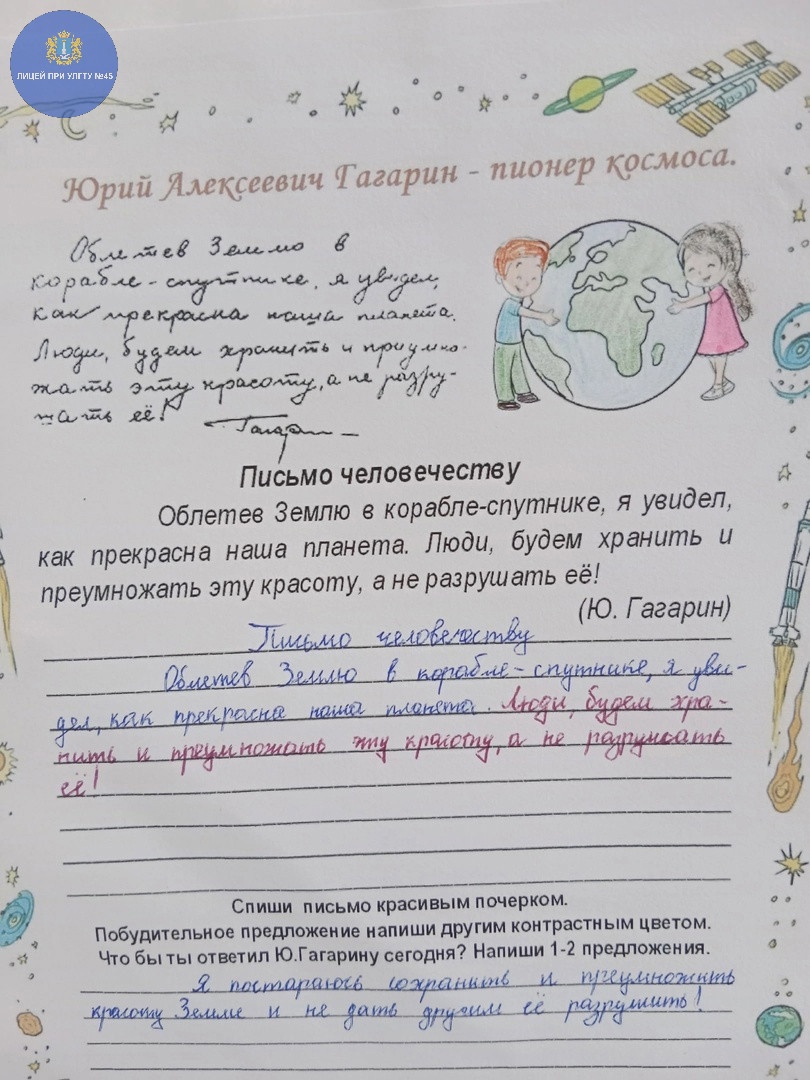 ЛИЦЕЙ ПРИ УЛГТУ №45
Юрий Алексеевич Гагарин - пионер космоса.
Облетев Землю в
корабле-спутнике, я увидел,
как прекрасна наша планета.
Люди, будем хранить и приумно-
жать эту красоту, а не разру-
шать её!
Гагарин
Письмо человечеству
Облетев Землю в корабле-спутнике, я увидел,
как прекрасна наша планета. Люди, будем хранить и
преумножать эту красоту, а не разрушать её!
(Ю. Гагарин)
Письмо человечеству
Облетев Землю в корабле-спутнике, я уви-
дел, как прекрасна наша планета. Люди, будем хра-
нить и преумножать эту красоту, а не разрушать
её!
Спиши письмо красивым почерком.
Побудительное предложение напиши другим контрастным цветом.
Что бы ты ответил Ю.Гагарину сегодня? Напиши 1-2 предложения.
Я постараюсь сохранить и преумножить
красоту Земли и не дать другим её разрушить!